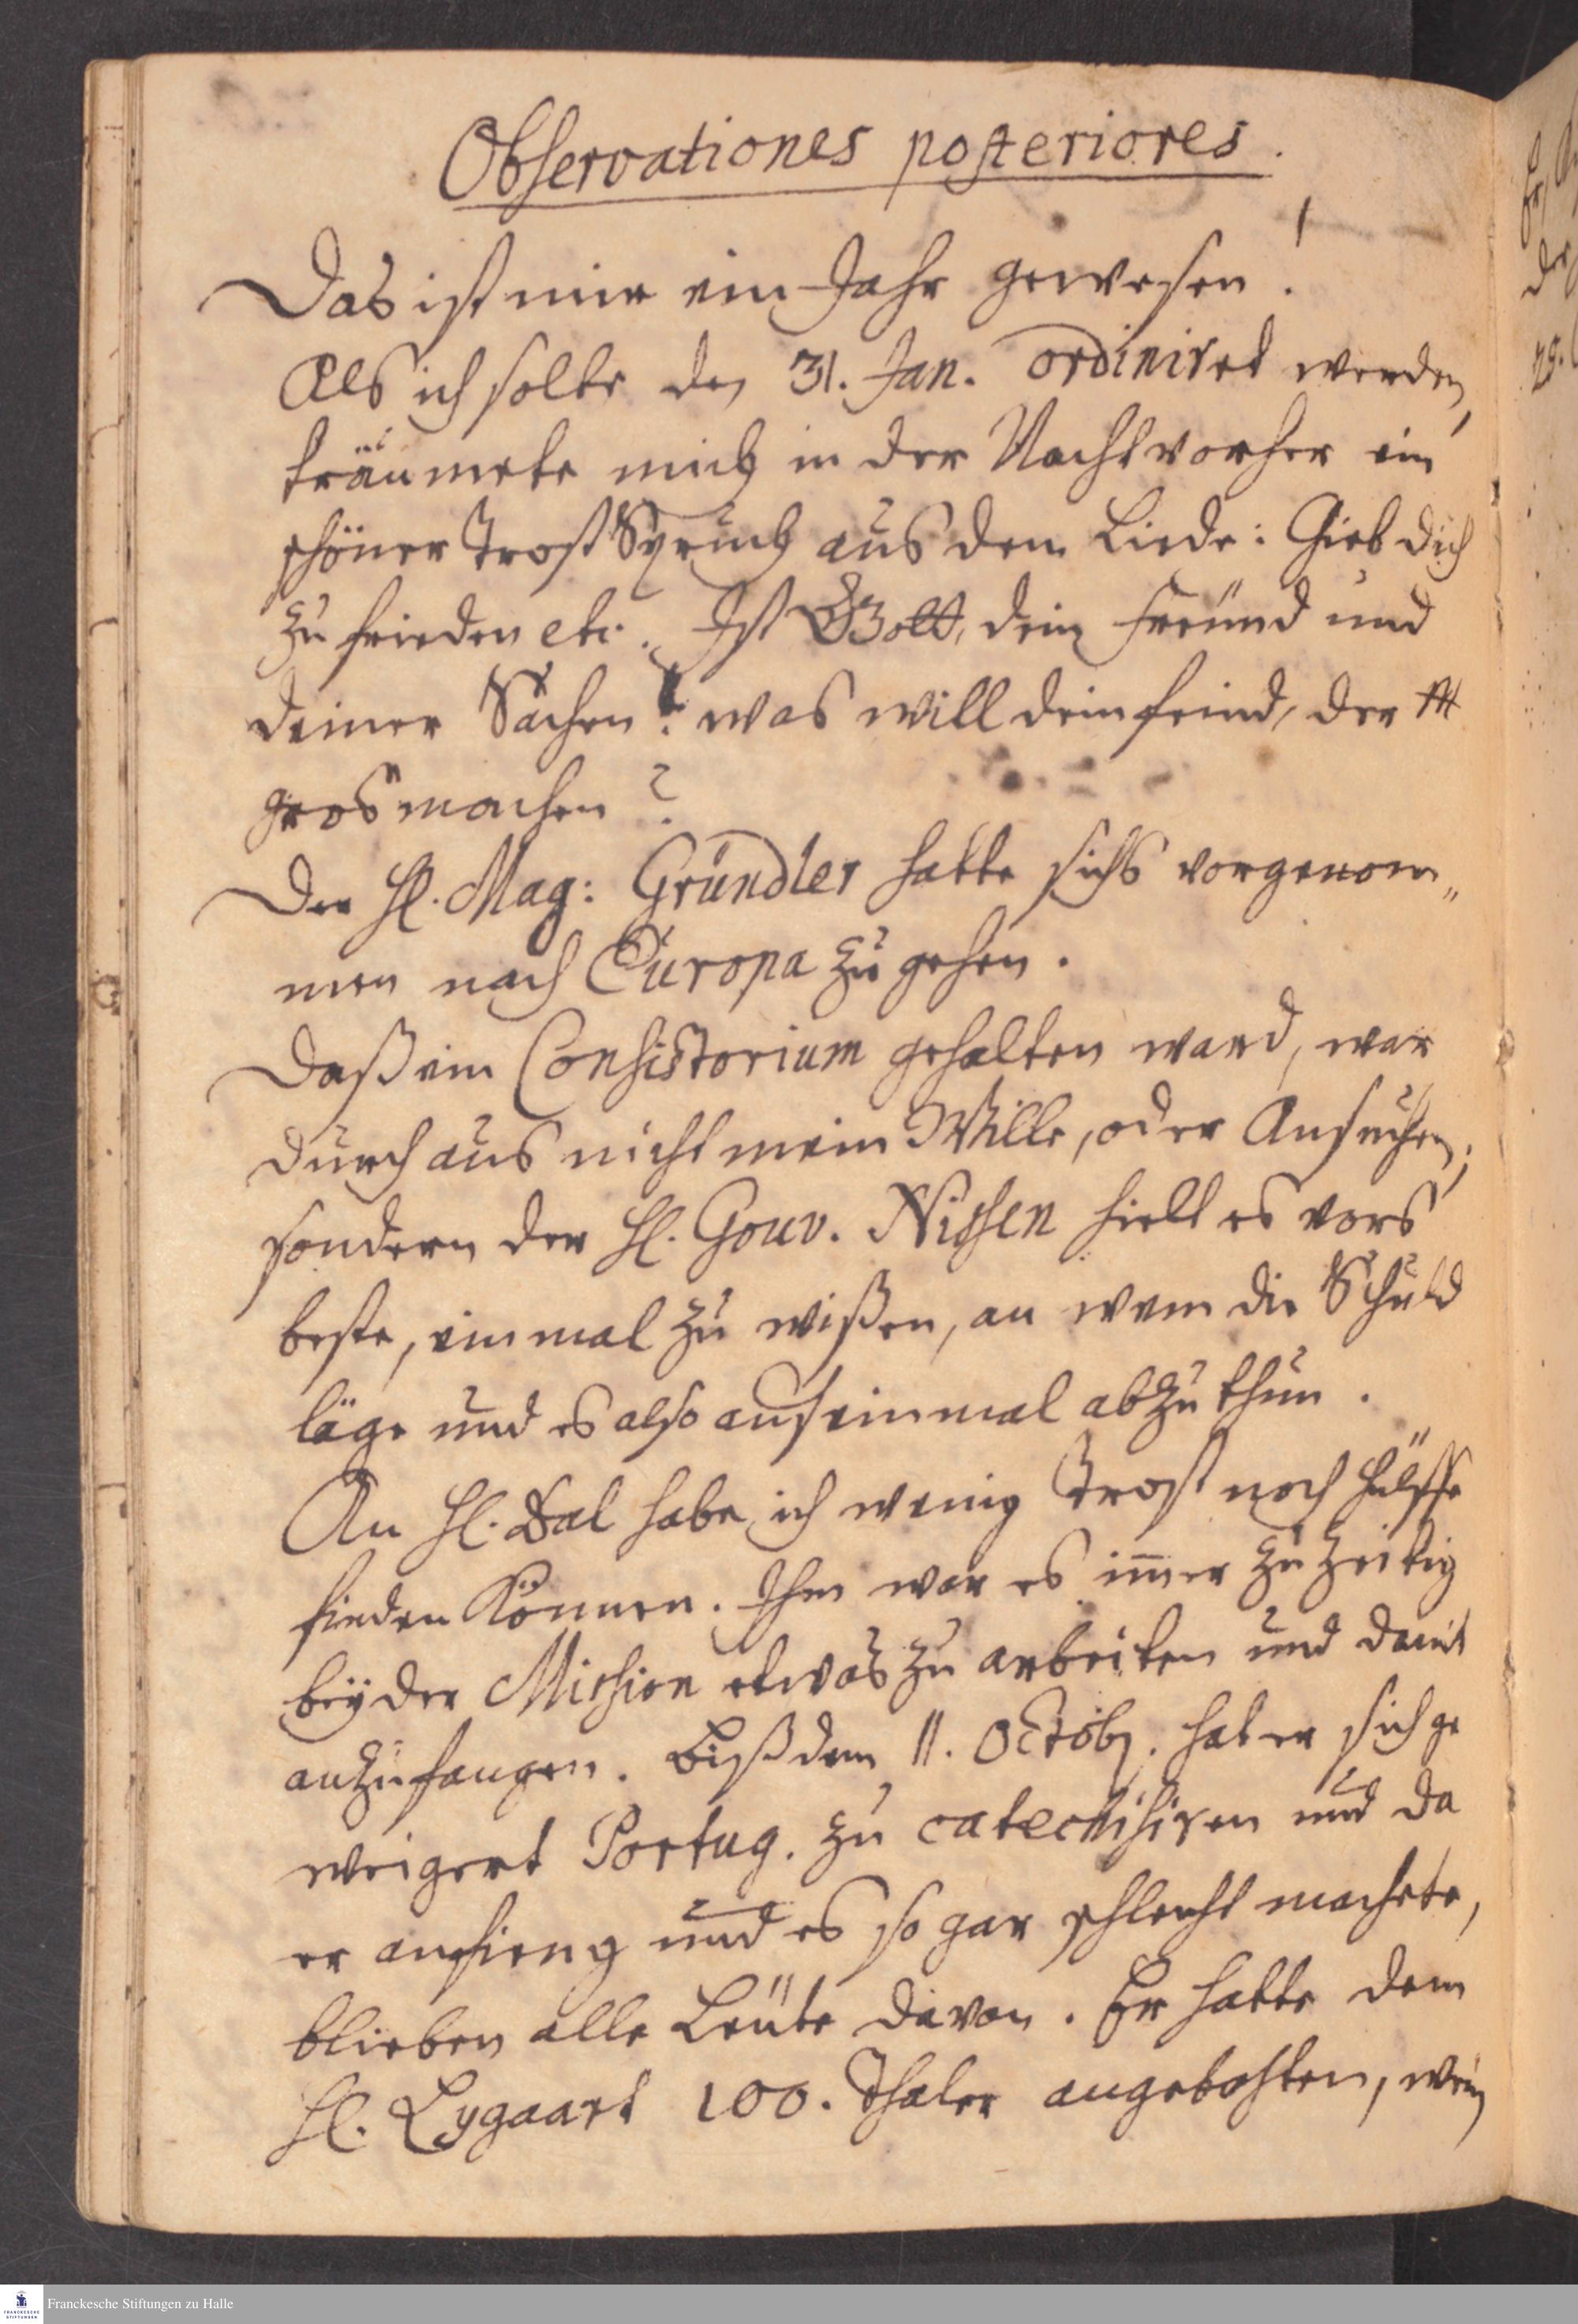 Observationes posteriores.
Das ist mir ein Jahr gewesen!
Als ich solte den 31. Jan. ordiniret werden,
träumete mich in der Nacht vorher ein
schöner Trost Spruch aus dem Liede: Gieb dich
zu frieden etc. Ist Gott dein Freund und
deiner Sachen? was will dein feind, der
gros machen?
Der H. Mag: Gründler hatte sichs vorgenom„
men nach Europa zu gehen.
Daß ein Consistorium gehalten ward, war
durchaus nicht mein Wille, oder Ansuchen;
sondern der H. Gouv. Nissen hielt es vors
beste, einmal zu wißen, an wem die Schuld
läge und es also auf einmal abzuthun.
An H. Dal habe ich wenig Trost noch Hülffe
finden können. Ihm war es im̅er zu zeitig
bey der Mission etwas zu arbeiten und damit
anzufangen. Biß dem 11. Octobr. hat er sich ge
weigert Portug. zu catechisiren und da
er anfieng und es so gar schlecht machete,
blieben alle Leute davon. Er hatte dem
H. Lygaart 100. Thaler angebohten, wen
Franckesche Stiftungen zu Halle
FRANCKESCHE
STIFTUNGEN